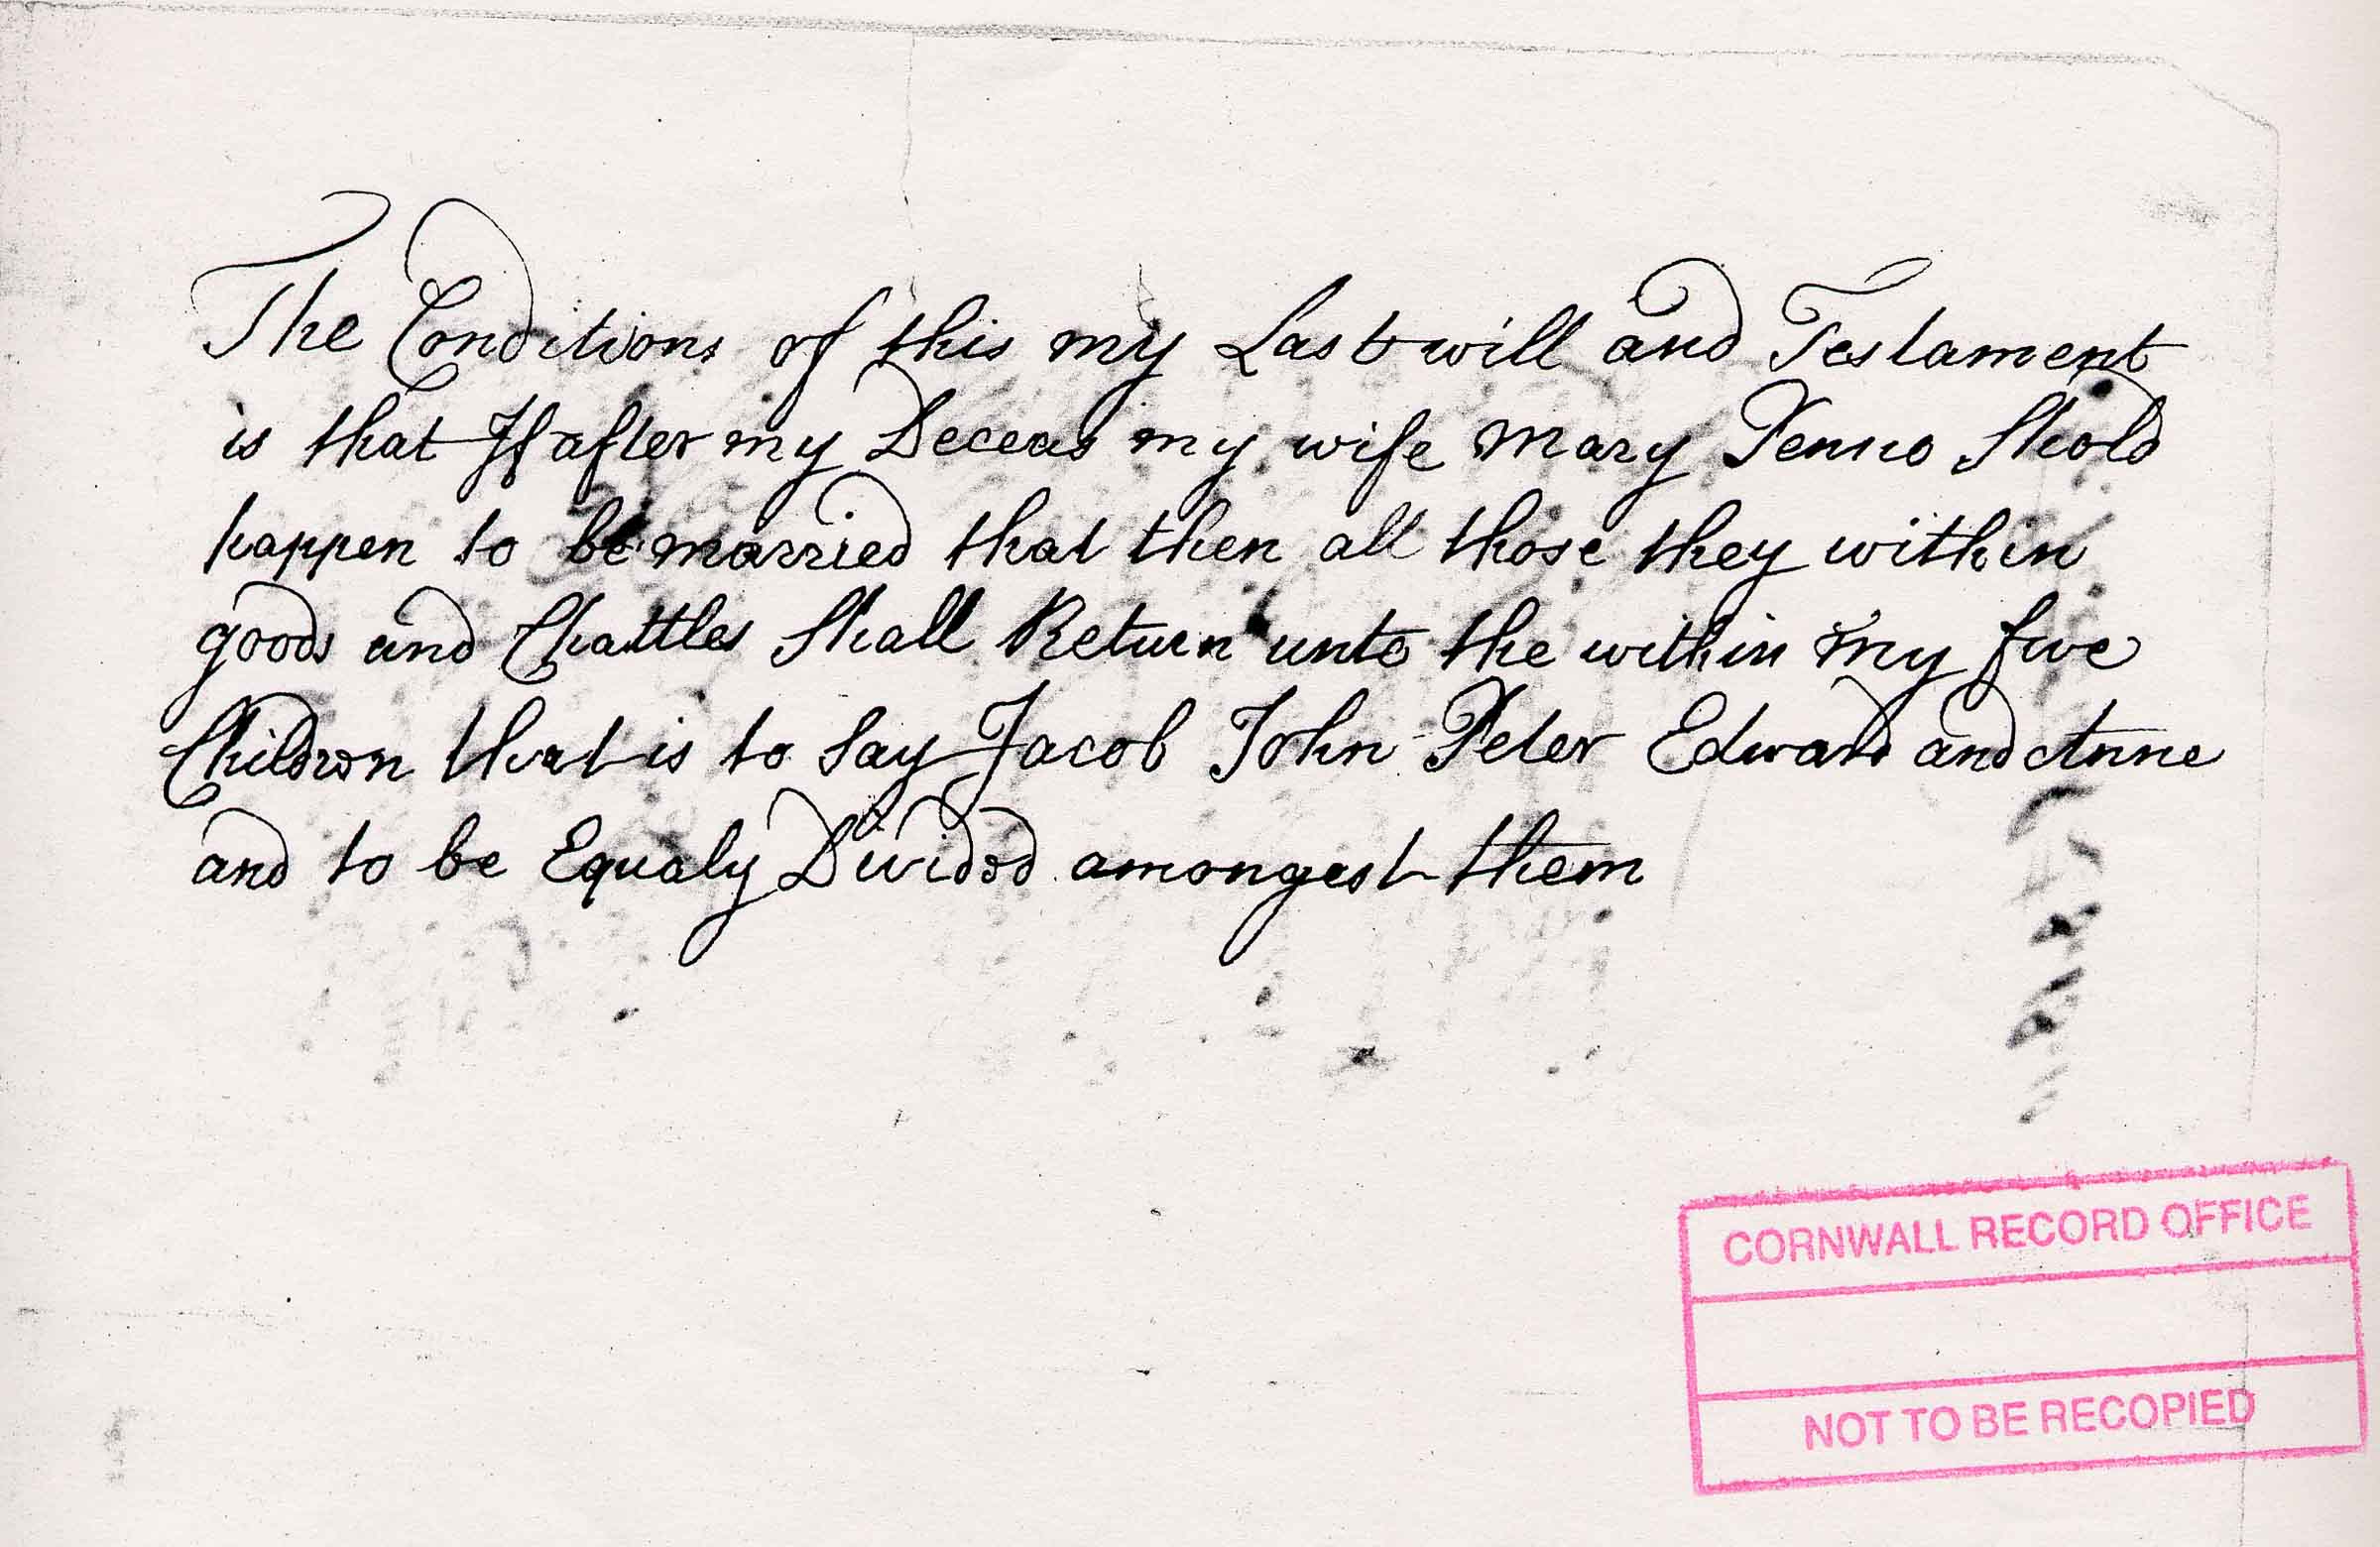 The Conditions of this my Last will and Testament
is that If after my Deceas my wife Mary Penno Shold
happen to be married that then all those they within
goods and Chattles Shall Return unto the within my five
Children that is to Say Jacob John Peter Edward and Anne
and to be Equaly Divided amongest them
CORNWALL RECORD OFFICE
NOT TO BE RECOPIED